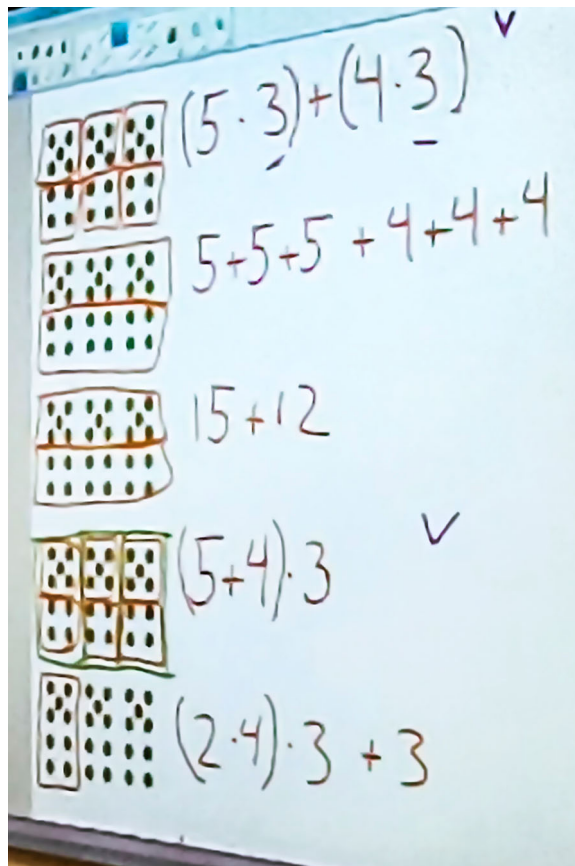 (5 · 3) + (4 · 3)
5 + 5 + 5 + 4 + 4 + 4
15 + 12
(5 + 4) · 3
(2 · 4) · 3 + 3